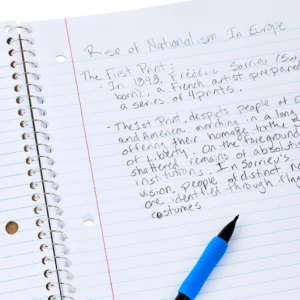 Rise of Nationalism In Europe
The First Print:
In 1848, Frédéric Sorrieu (
born), a French artist prepared
a series of 4 prints.
- The 1st Print, despicts people of E
and America marching in a long
offering their homage to the S
of Liberty. On the foreground
shattered remains of absolutis
institutions. In Sorrieu's
vision, people of distinct n
are identified through flag
costumes.